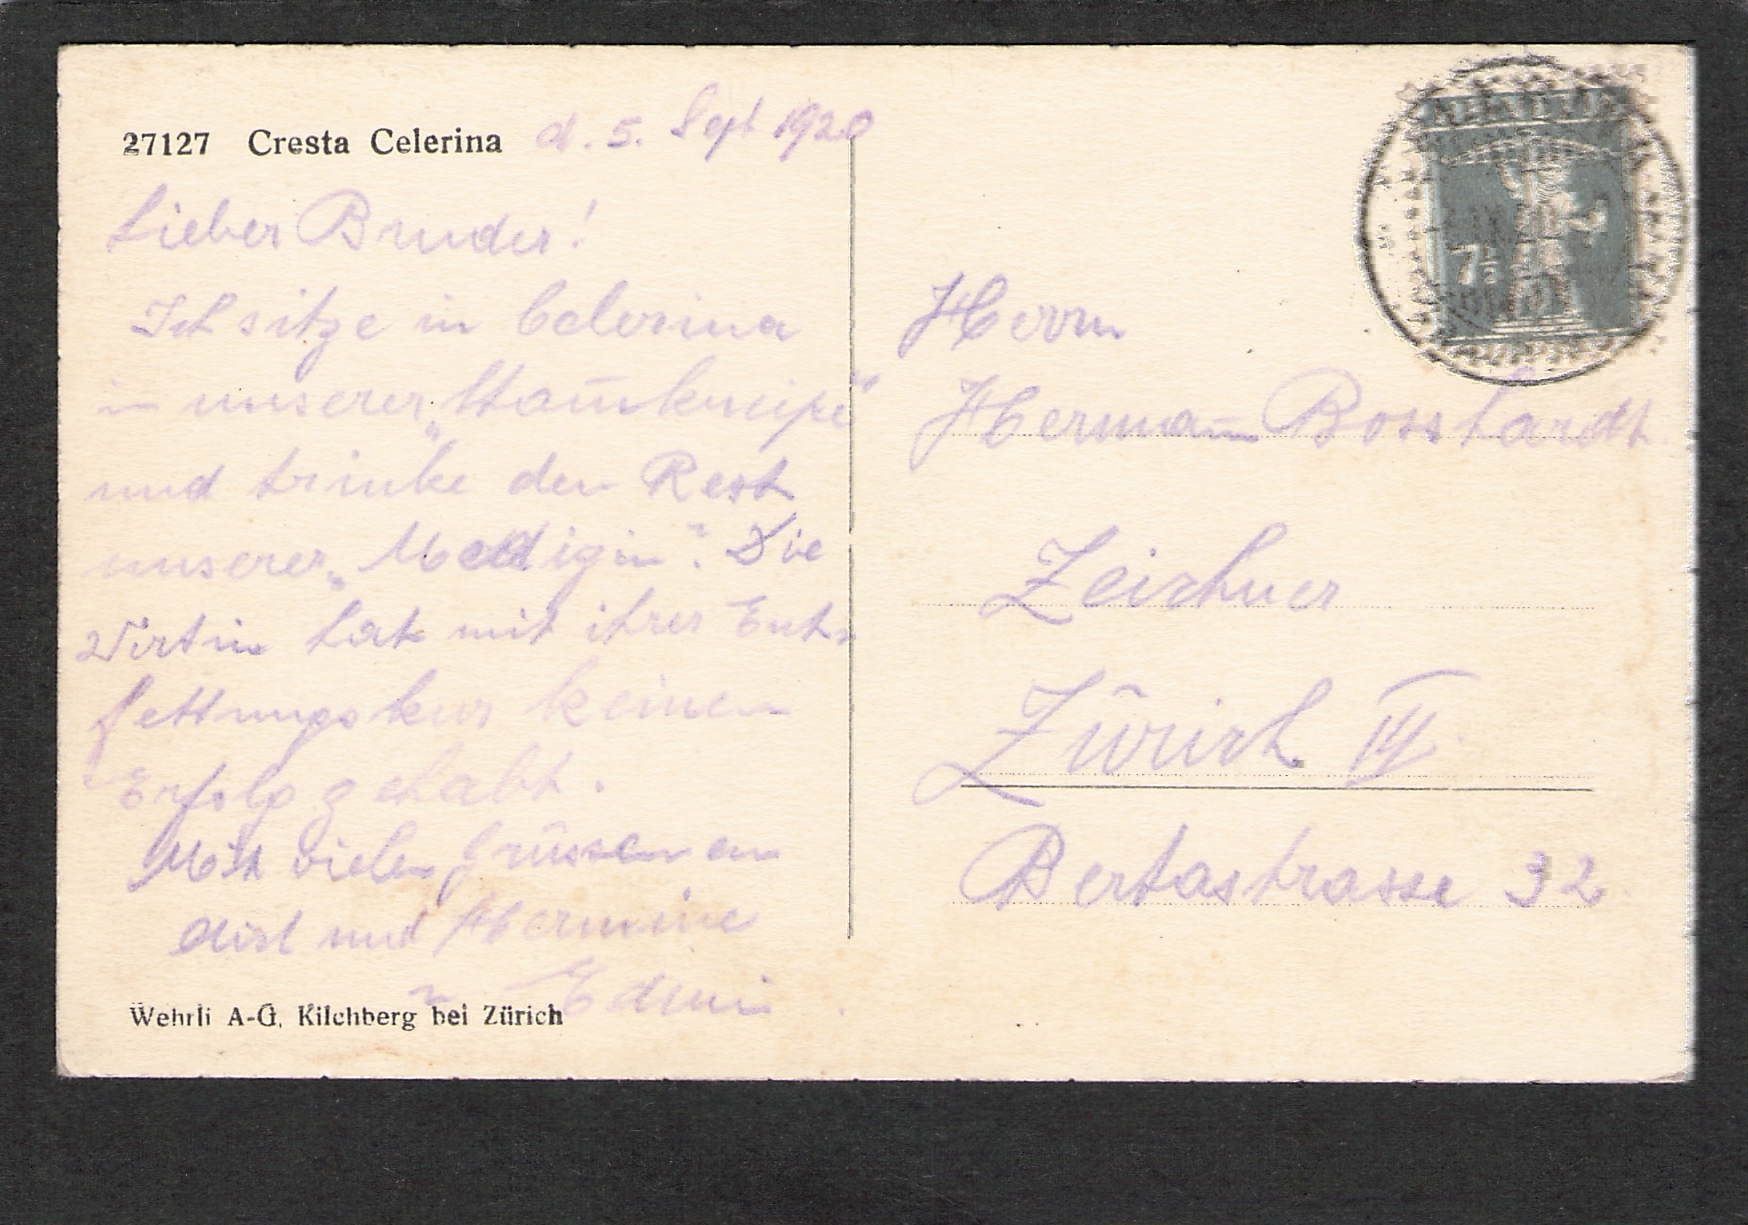 27127 Cresta Celerina d. 5. Sept 1920
Lieber Bruder!
Ich sitze in Celerina
in unserer „Stam̅kneipe“
und trinke den Rest
unserer „Medizin“. Die
Wirtin hat mit ihrer Ent-
fettungskur keinen
Erfolg gehabt.
Mit vielen Grüssen an
dich und Hermine
Edwin
Wehrli A-G, Kilchberg bei Zürich
HELVETIA
7½
Herrn
Herman̅ Bosshardt
Zeichner
Zürich IV
Bertastrasse 32